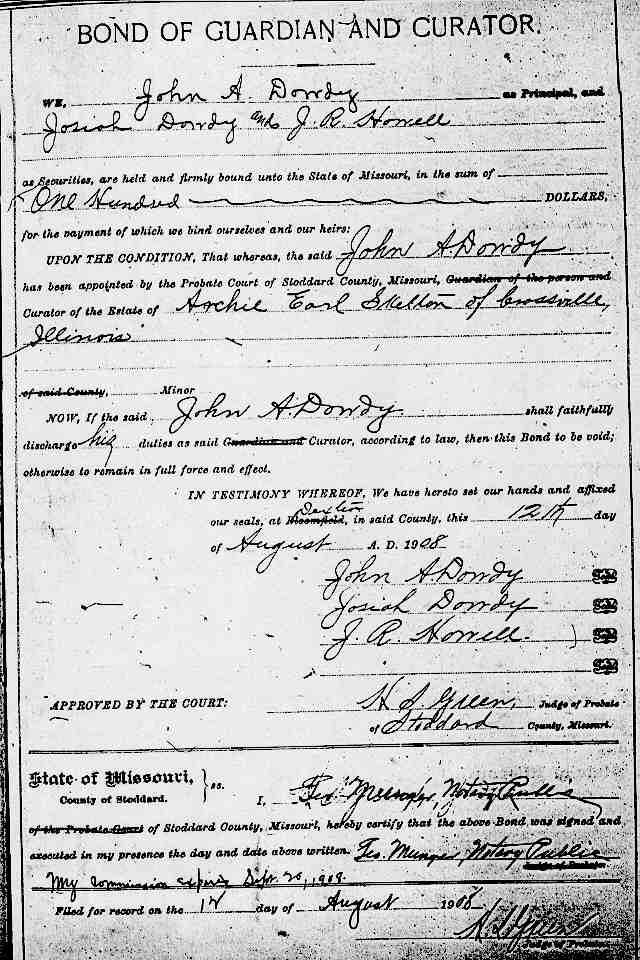 BOND OF GUARDIAN AND CURATOR.
WE, John A. Dowdy as Principal, and
Josiah Dowdy and J. R. Howell
as Securities, are held and firmly bound unto the State of Missouri, in the sum of
One Hundred DOLLARS,
for the payment of which we bind ourselves and our heirs:
UPON THE CONDITION, That whereas, the said John A. Dowdy
has been appointed by the Probate Court of Stoddard County, Missouri, Guardian of the person and
Curator of the Estate of Archie Earl Skelton of Crossville,
Illinois
of said County, Minor
NOW, If the said John A. Dowdy shall faithfully
discharge his duties as said Guardian and Curator, according to law, then this Bond to be void;
otherwise to remain in full force and effect.
IN TESTIMONY WHEREOF, We have hereto set our hands and affixed
Dexter
our seals, at Bloomfield, in said County, this 12th day
of August A. D. 1908
John A. Dowdy
Josiah Dowdy
J. R. Howell
APPROVED BY THE COURT: Green, Judge of Probate
of Stoddard County, Missouri.
State of Missouri, } ss.
County of Stoddard.
I, Notary Public
of the Probate Court of Stoddard County, Missouri, hereby certify that the above Bond was signed and
executed in my presence the day and date above written. Munger, Notary Public
Judge of Probate
My commission expires Sept. 20, 1908.
Filed for record on the 12 day of August 1908
Green
Judge of Probate.